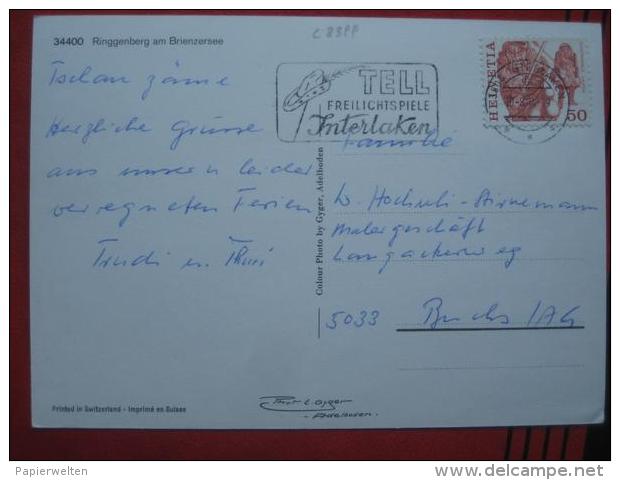 34400 Ringgenberg am Brienzersee
C 83PP
TELL
FREILICHTSPIELE
Interlaken
HELVETIA
50
Tschau zäme
Herzliche Grüsse
aus unsern leider
verregneten Ferien
Trudi u. Thuri
Familie
W. Hochuli-Stirnemann
Malergeschäft
Langackerweg
5033 Buchs / AG
Colour Photo by Gyger, Adelboden
Printed in Switzerland - Imprimé en Suisse
Gyger
Adelboden
Papierwelten
delcampe.net